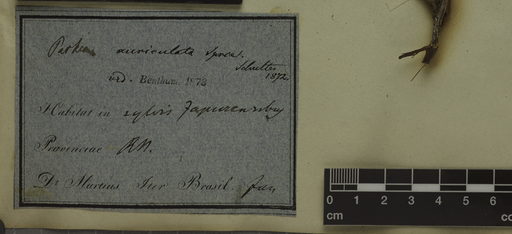 Parkia auriculata Spruce.
Schulter
1872
vid. Bentham. 1873
Habitat in sylvis Japurensibus
Provinciae R.N.
Dr Martius Iter Brasil. Jan.
0 1 2 3 4 5 6
cm